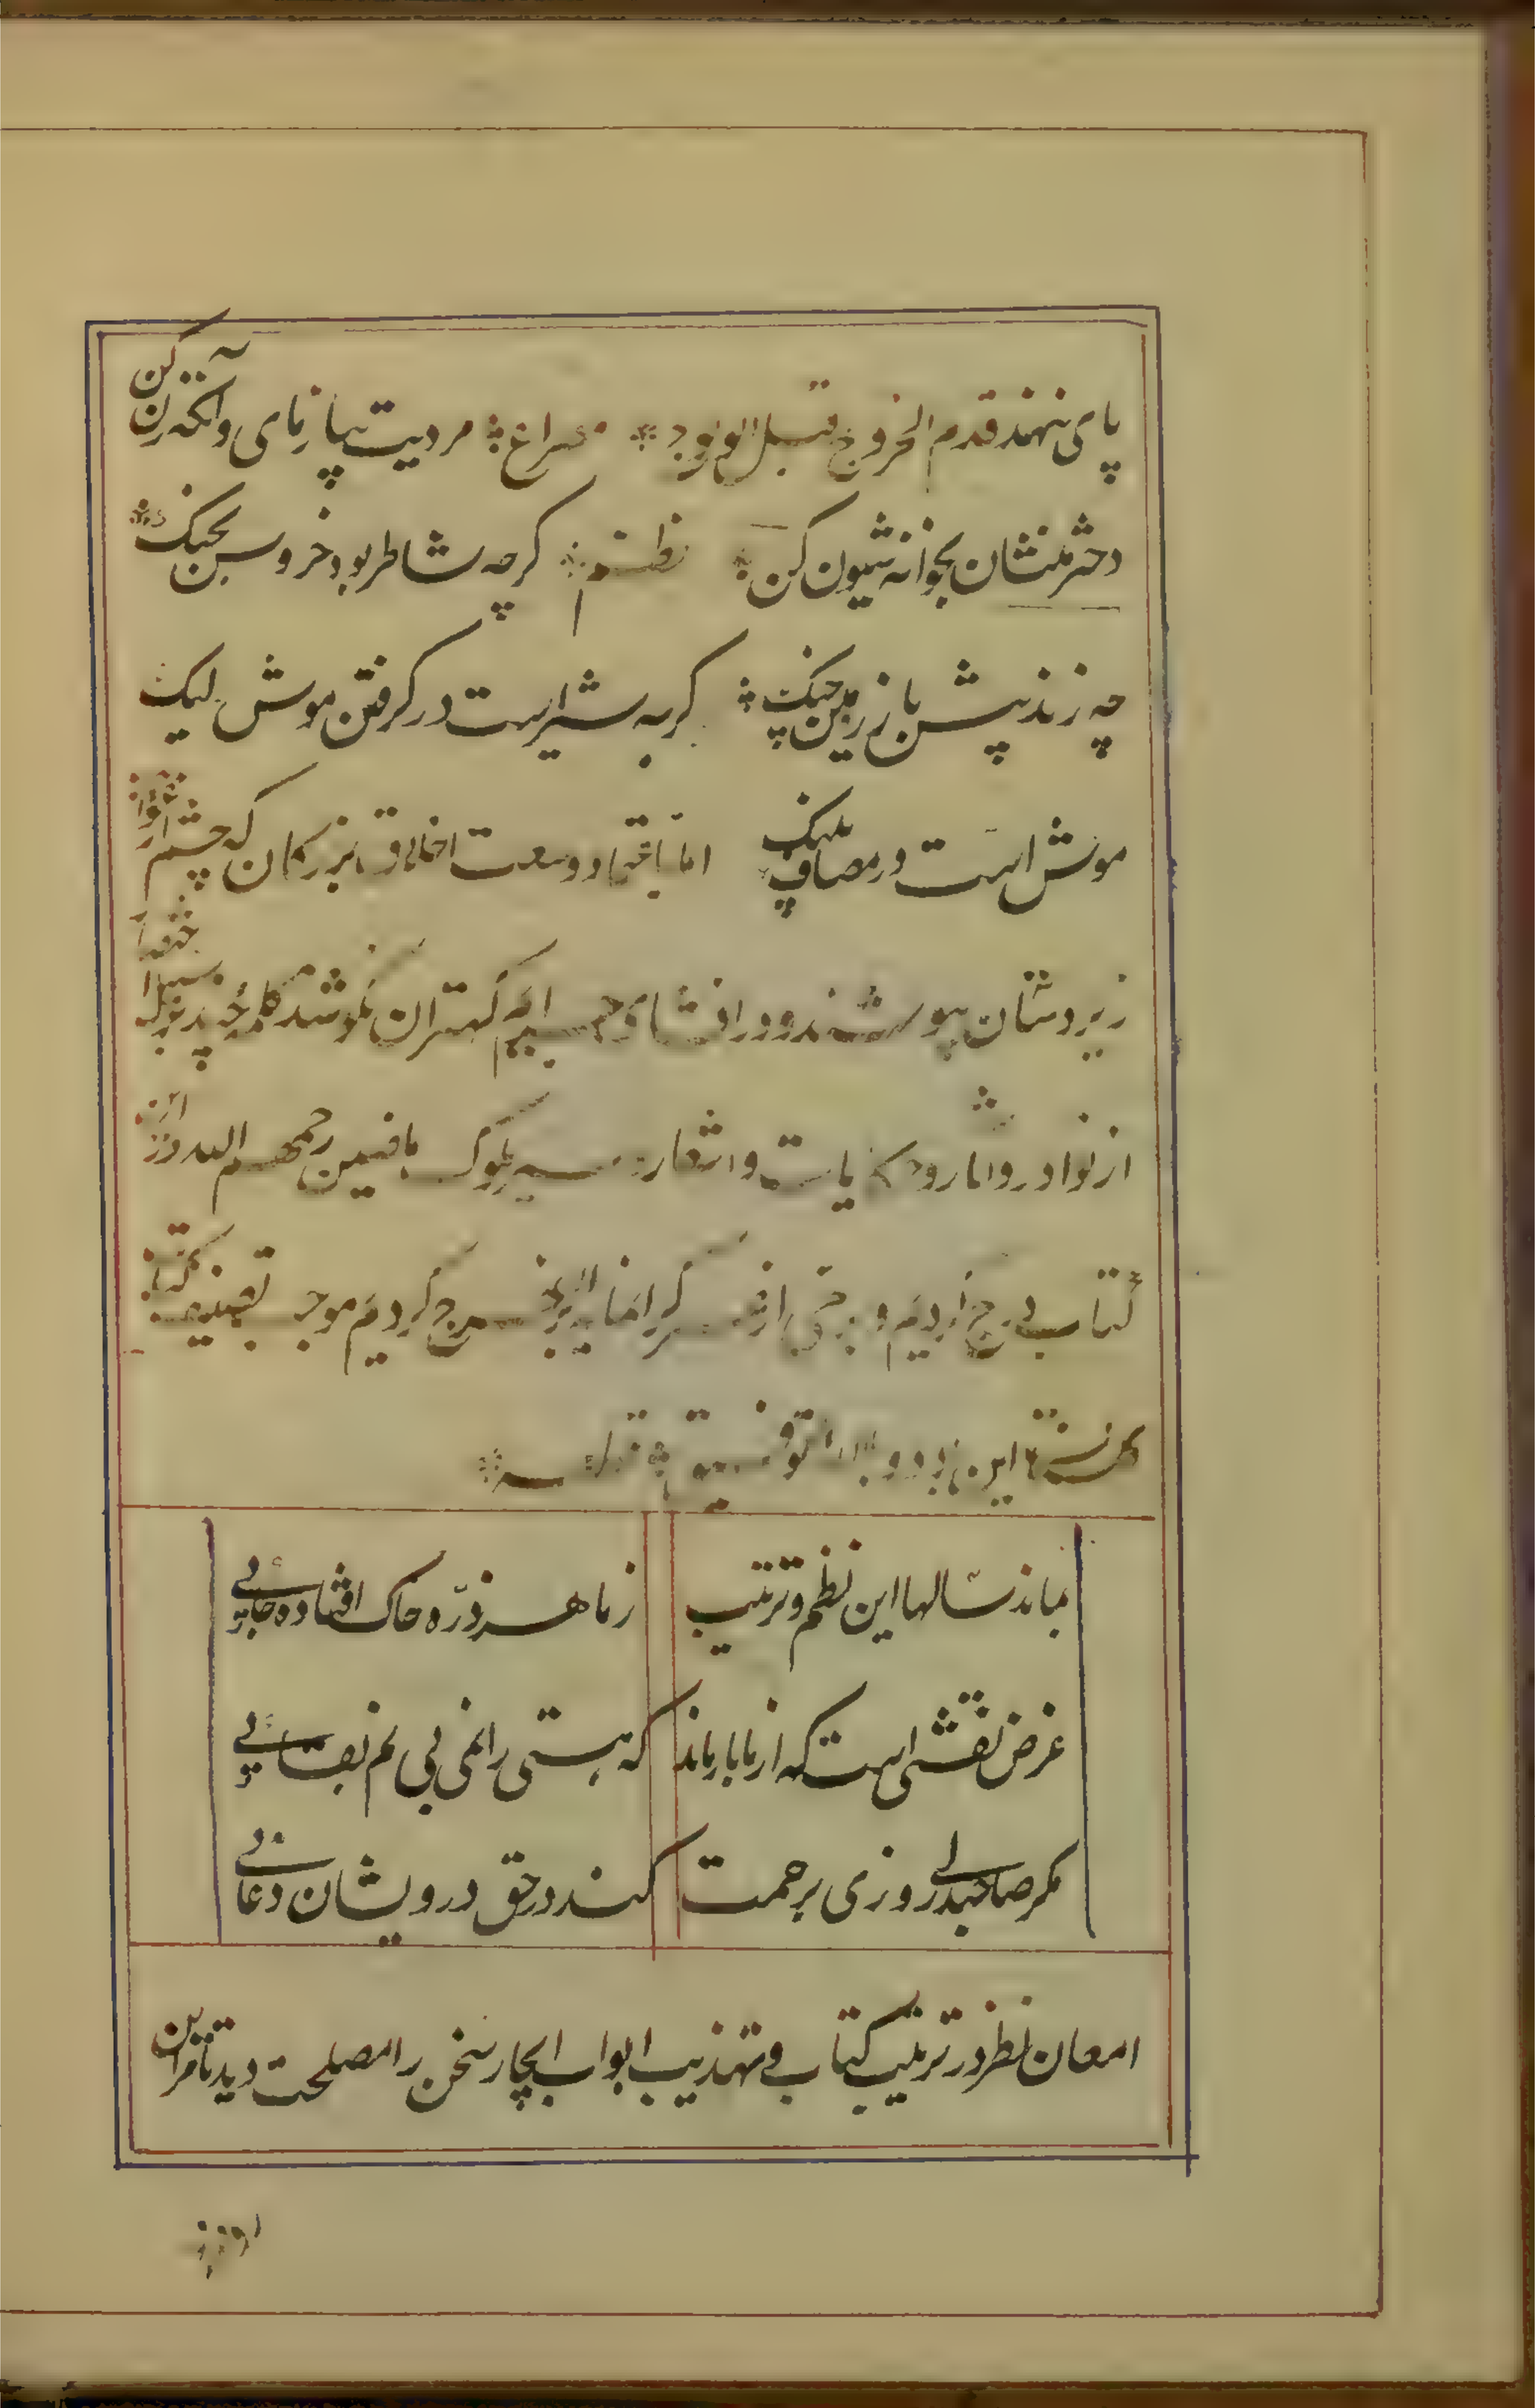 پای ننهند قدم الخروج قبل الولوج مصراع مردیت بیازمای وآنگه زن کن
دختر منشان بخوانه شیون کن نظم کرچه شاطر بود خروس بجنک
چه زند پیش باز رویین چنک کربه شیر است در کرفتن موش لیک
موش است در مصاف پلنک اما باعتماد وسعت اخلاق بزرکان که چشم از عوایب
زیردستان بپوشند و در افشای جرایم کهتران نکوشند کلمه چند بر سبیل اختصار
از نوادر و امثال و حکایات و اشعار و سیر ملوک ماضیین رحمهم الله در این
کتاب درج کردیم و برخی از عمر کرانمایه برو خرج کردیم موجب تصنیف کتاب
کلستان این بود و بالله التوفیق
بماند سالها این نظم و ترتیب زما هر ذره خاک افتاده جایی
غرض نقشی است که از ما باز ماند که هستی را نمی بینم بقایی
مکر صاحبدلی روزی برحمت کند در حق درویشان دعائی
امعان نظر در ترتیب کتاب و تهذیب ابواب ایجاز سخن را مصلحت دید تا مر این